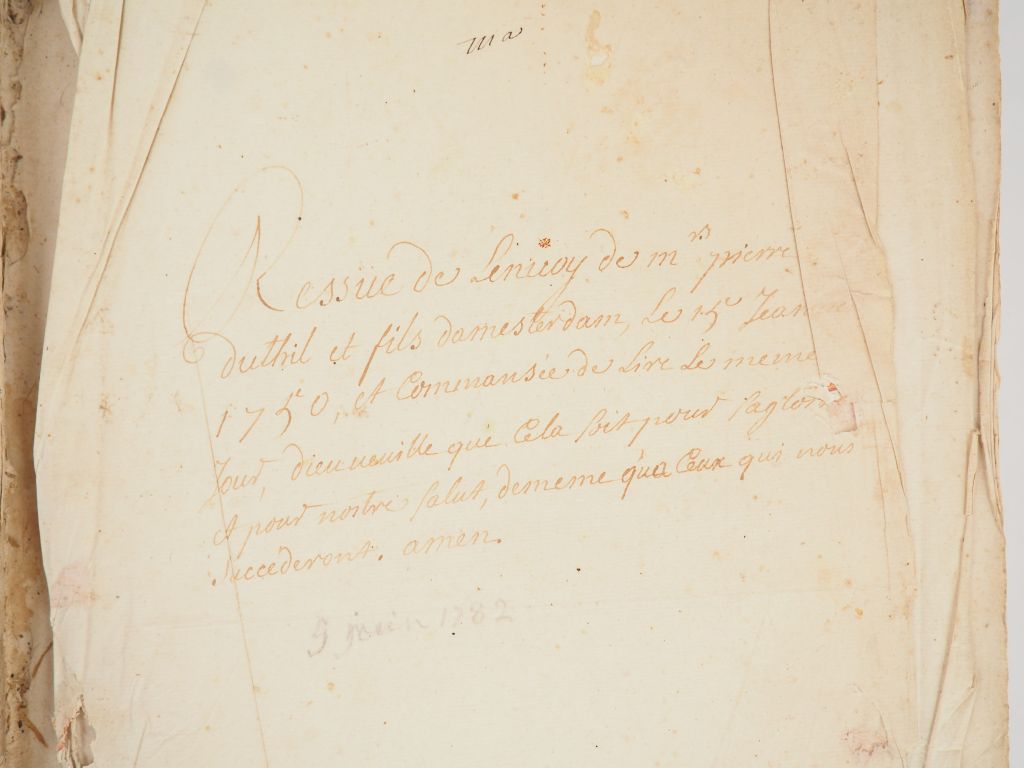 ma
Ressüe de Lenuoy de m.rs pierre
duthil et fils damesterdam, Le 15e
1750, et Commansée de Lire Le meme
Jour, dieu ueuille que Cela soit pour sagloire
et pour nostre salut, dememe qua Ceux qui nous
succederont. amen.
9 juin 1782